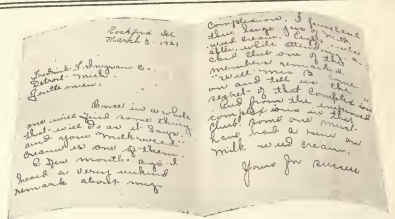 Rockford Ill
March 3 - 1921
Fredrick F. Ingram Co.
Detroit - Mich -
Gentlemen:
Once in a while
one will find some thing
that will do as it says
and your milkweed
cream is one of them.
A few months ago I
heard a very unkind
remark about my
complexion. I purchased
three large jars of milk
weed cream.
after, while attending a
card club one of the
members remarked
"Well, Mrs
on and tell us the
secret of that complexion
And from the improved
complexions in the
Club some one must
have had a run on
milk weed cream.
Yours for success